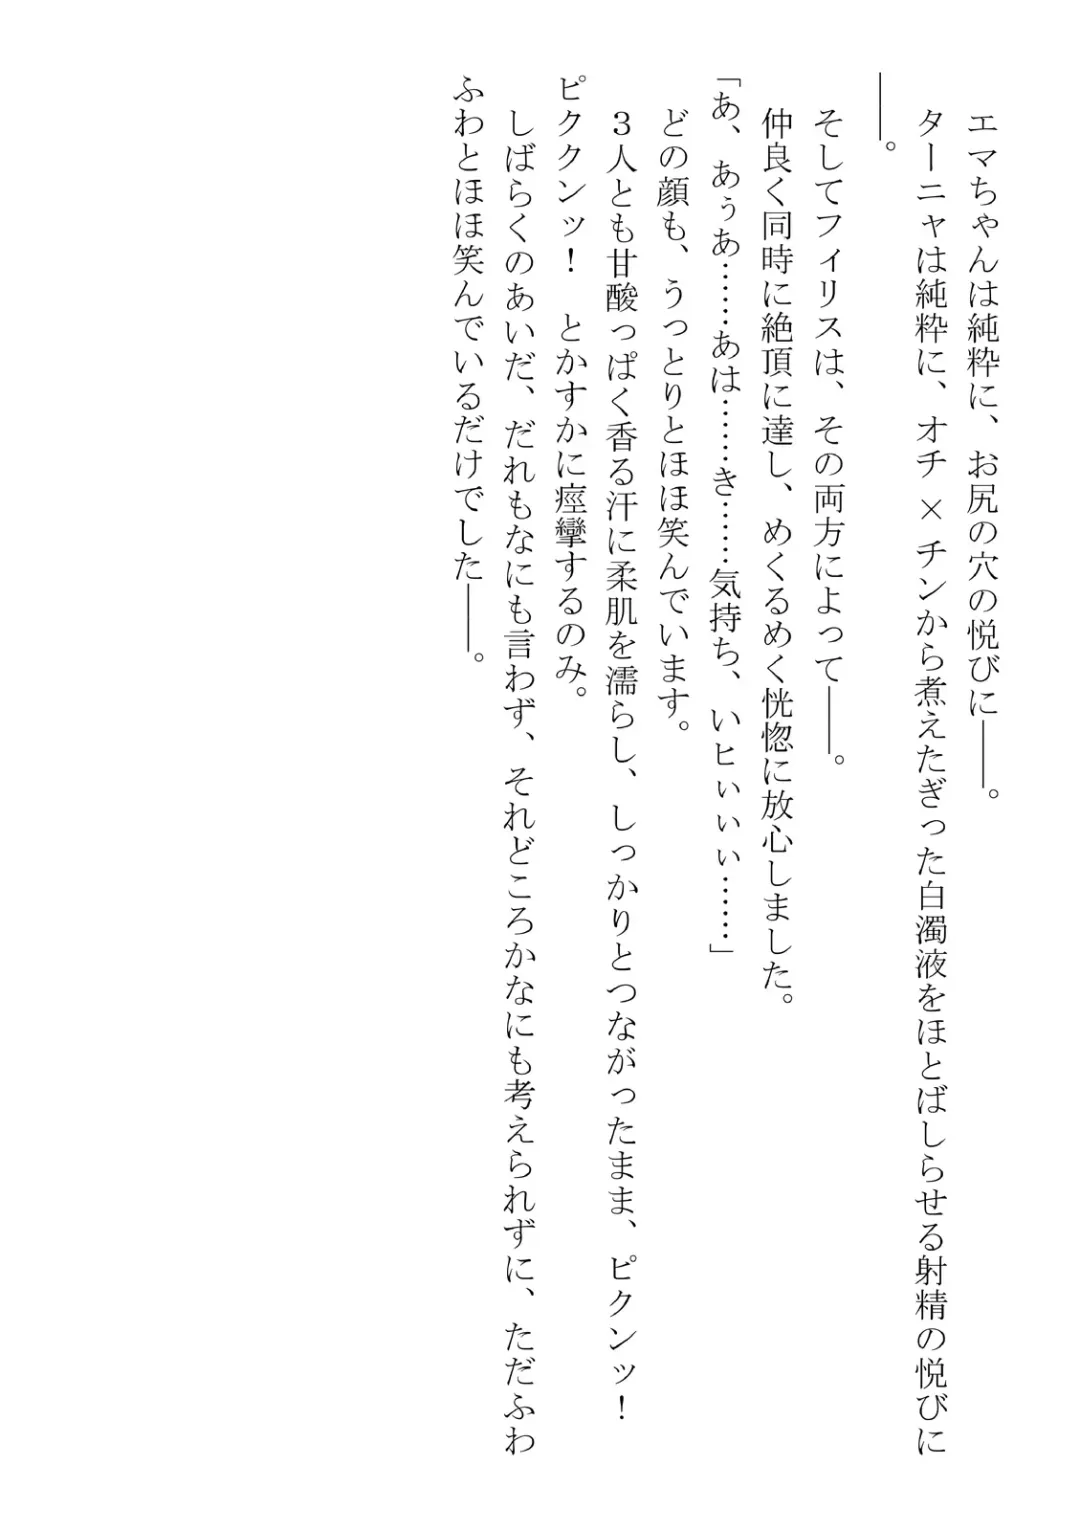 エマちゃんは純粋に、お尻の穴の悦びに――。
ターニャは純粋に、オチ×チンから煮えたぎった白濁液をほとばしらせる射精の悦びに
――。
そしてフィリスは、その両方によって――。
仲良く同時に絶頂に達し、めくるめく恍惚に放心しました。
「あ、あぅあ……あは……き……気持ち、いヒぃぃぃ……」
どの顔も、うっとりとほほ笑んでいます。
３人とも甘酸っぱく香る汗に柔肌を濡らし、しっかりとつながったまま、ピクンッ！
ピククンッ！　とかすかに痙攣するのみ。
しばらくのあいだ、だれもなにも言わず、それどころかなにも考えられずに、ただふわ
ふわとほほ笑んでいるだけでした――。